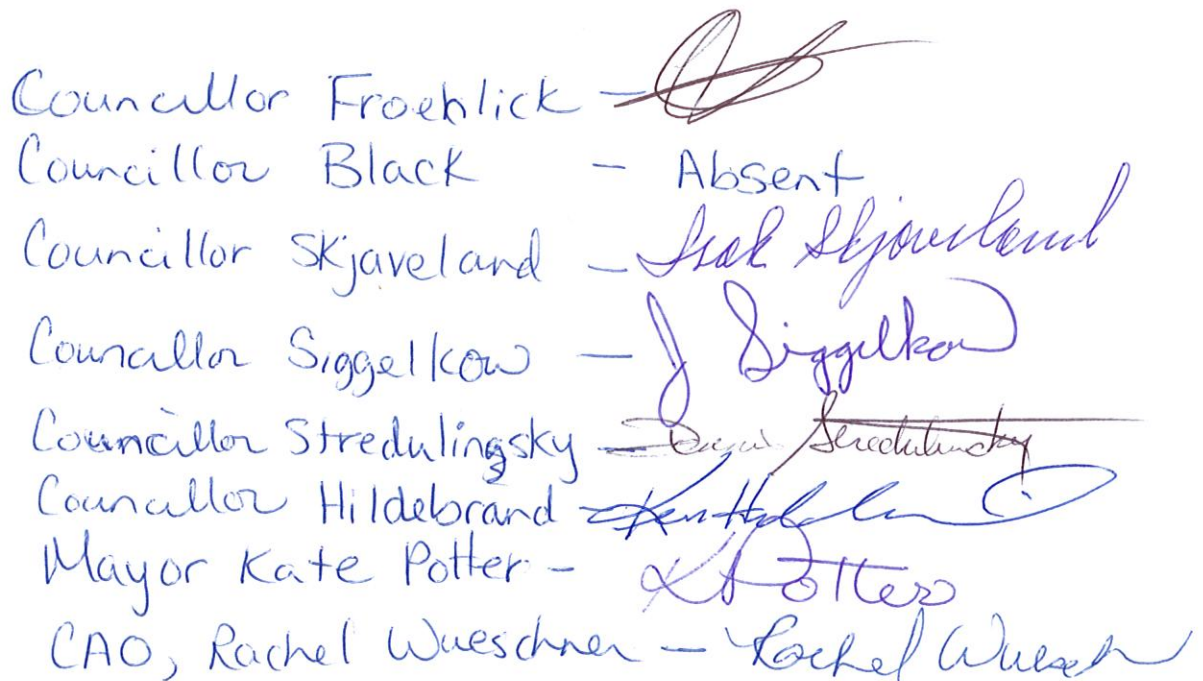 Councillor Froehlick -
Councillor Black - Absent
Councillor Skjaveland - Isak Skjaveland
Councillor Siggelkow - J Siggelkow
Councillor Stredulingsky - Stredulinsky
Councillor Hildebrand - Ken
Mayor Kate Potter - K Potter
CAO, Rachel Wueschner - Rachel